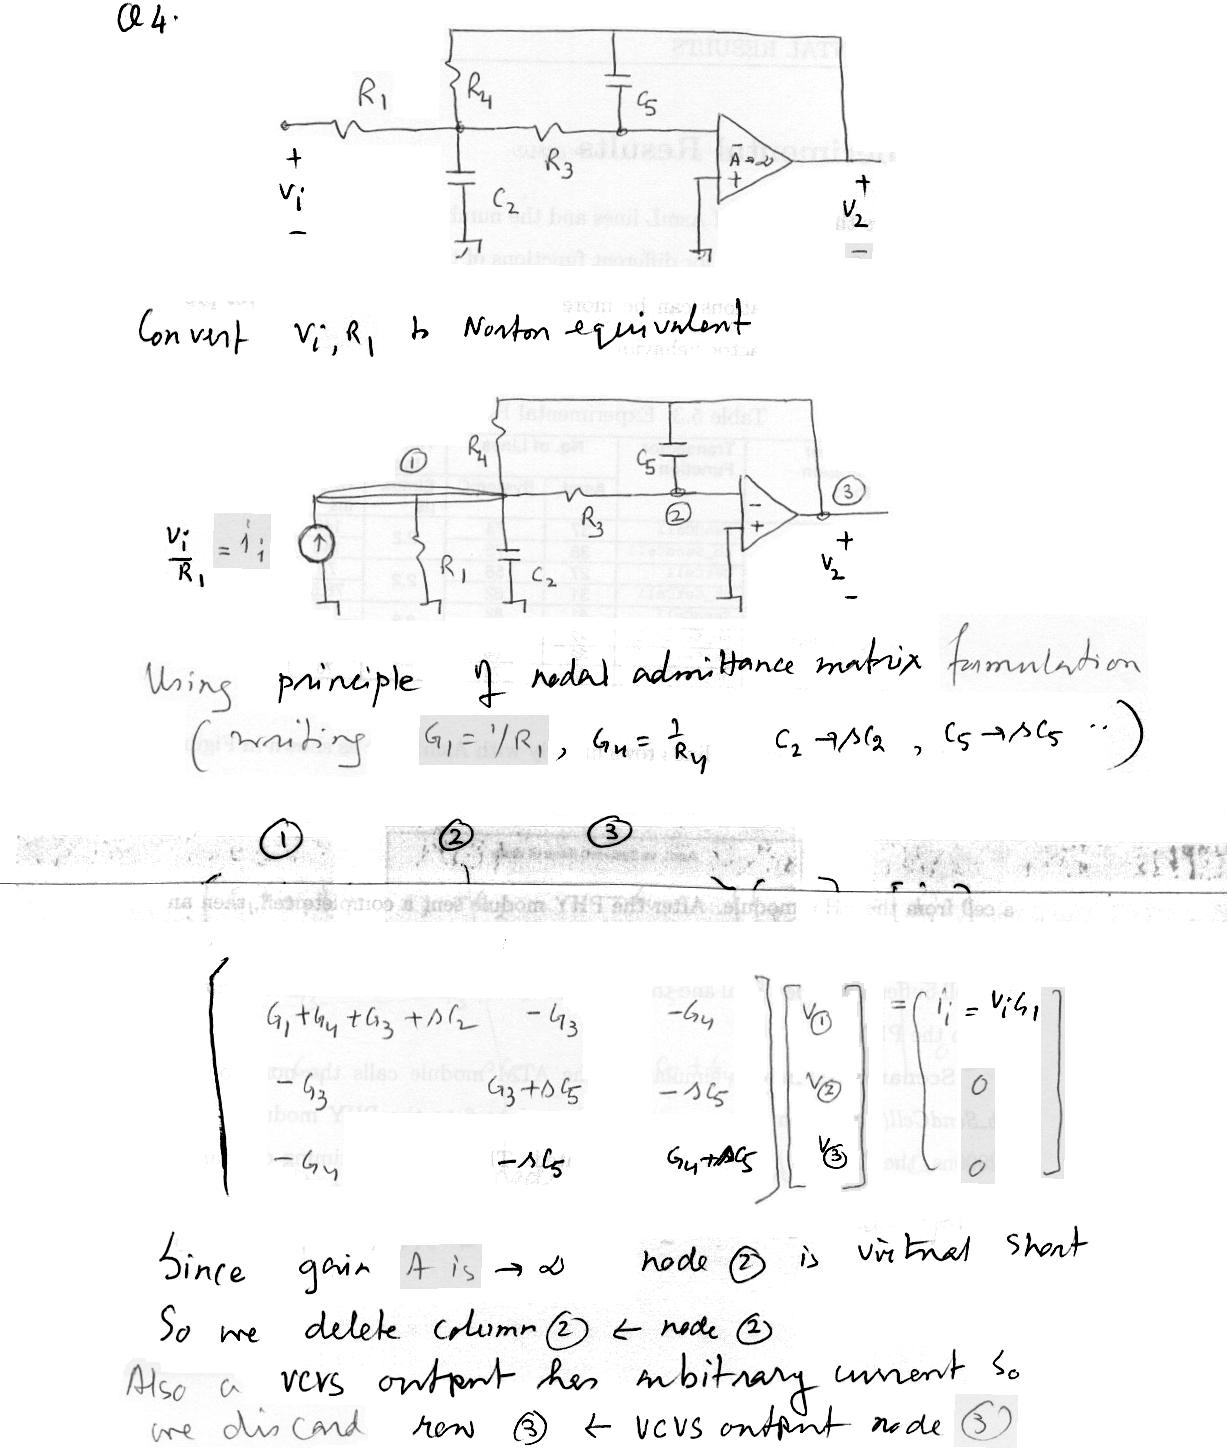 Q4.
R1
R4
C5
R3
C2
+
Vi
−
−
A→∞
+
+
V2
−
Convert Vi, R1 to Norton equivalent
1
R4
C5
R3
2
3
Vi/R1 = ii
R1
C2
−
+
+
V2
−
Using principle of nodal admittance matrix formulation
(writing G1 = 1/R1, G4 = 1/R4 C2 → sC2, C5 → sC5 ..)
1 2 3
G1+G4+G3+sC2 −G3 −G4 V1 = ii = ViG1
−G3 G3+sC5 −sC5 V2 0
−G4 −sC5 G4+sC5 V3 0
Since gain A is → ∞ node 2 is virtual short
So we delete column 2 ← node 2
Also a VCVS output has arbitrary current so
we discard row 3 ← VCVS output node 3